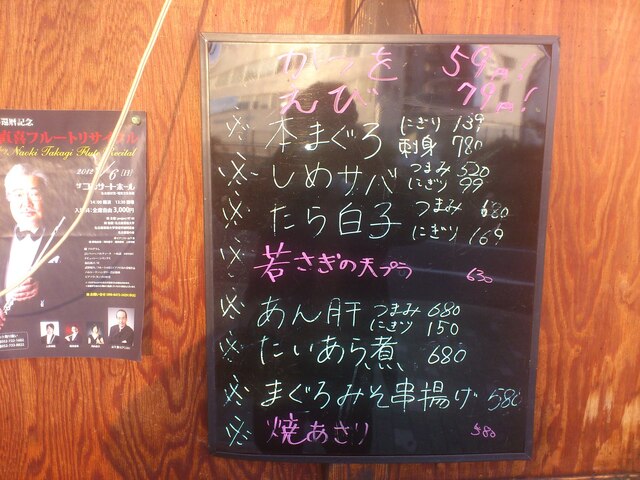 還暦記念
直喜フルートリサイタル
Naoki Takagi Flute Recital
2012
6 (日)
コンサートホール
全席自由 3,000円
かつを 59円!
えび 79円!
※ 本まぐろ にぎり 139
刺身 780
※ しめサバ つまみ 520
にぎり 99
※ たら白子 つまみ 680
にぎり 169
※ 若さぎの天プラ 630
※ あん肝 つまみ 680
にぎり 150
※ たいあら煮 680
※ まぐろみそ串揚げ 580
※ 焼あさり 580